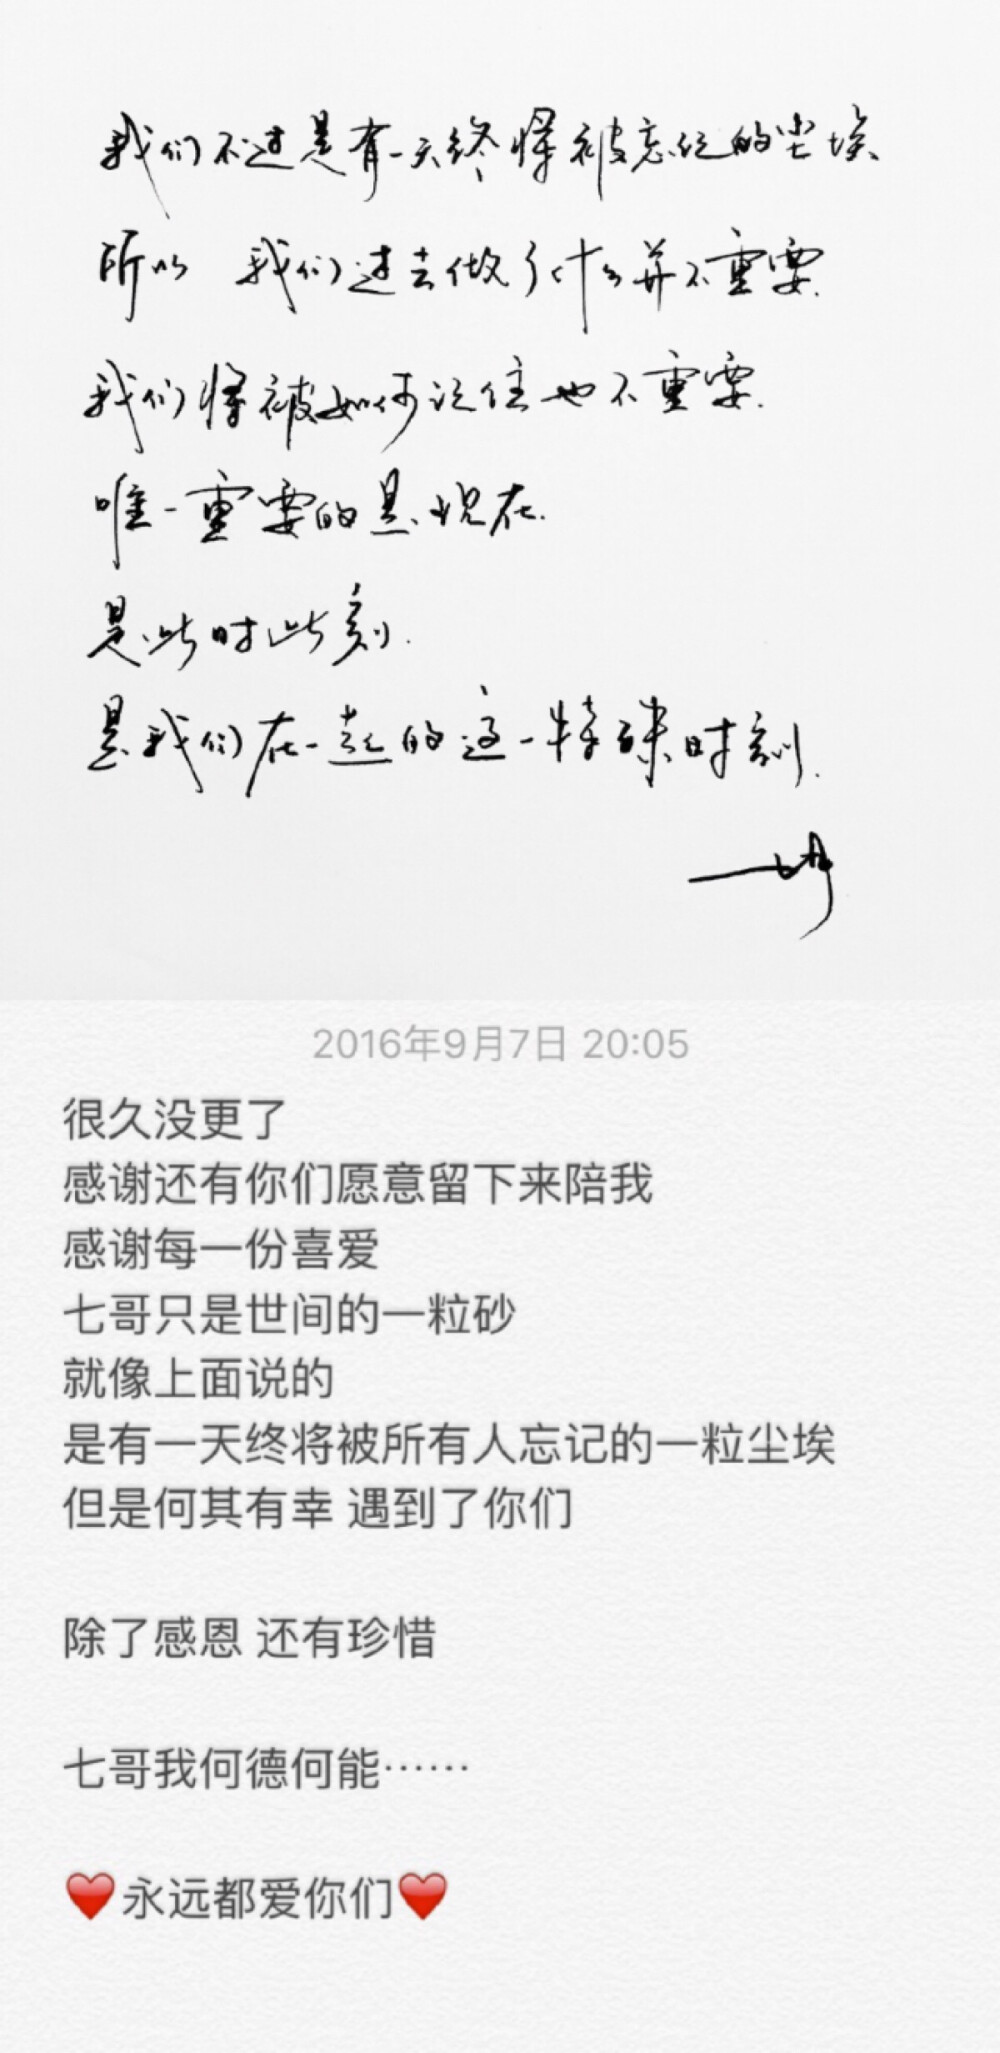 我们不过是有一天终将被忘记的尘埃
所以 我们过去做了什么并不重要.
我们将被如何记住也不重要.
唯一重要的是现在.
是此时此刻.
是我们在一起的这一特殊时刻.
2016年9月7日 20:05
很久没更了
感谢还有你们愿意留下来陪我
感谢每一份喜爱
七哥只是世间的一粒砂
就像上面说的
是有一天终将被所有人忘记的一粒尘埃
但是何其有幸 遇到了你们
除了感恩 还有珍惜
七哥我何德何能……
❤️永远都爱你们❤️